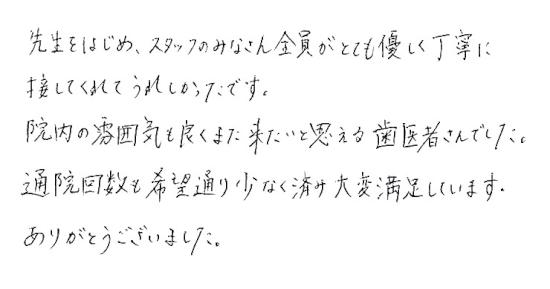 先生をはじめ、スタッフのみなさん全員がとても優しく丁寧に
接してくれてうれしかったです。
院内の雰囲気も良くまた来たいと思える歯医者さんでした。
通院回数も希望通り少なく済み大変満足しています。
ありがとうございました。